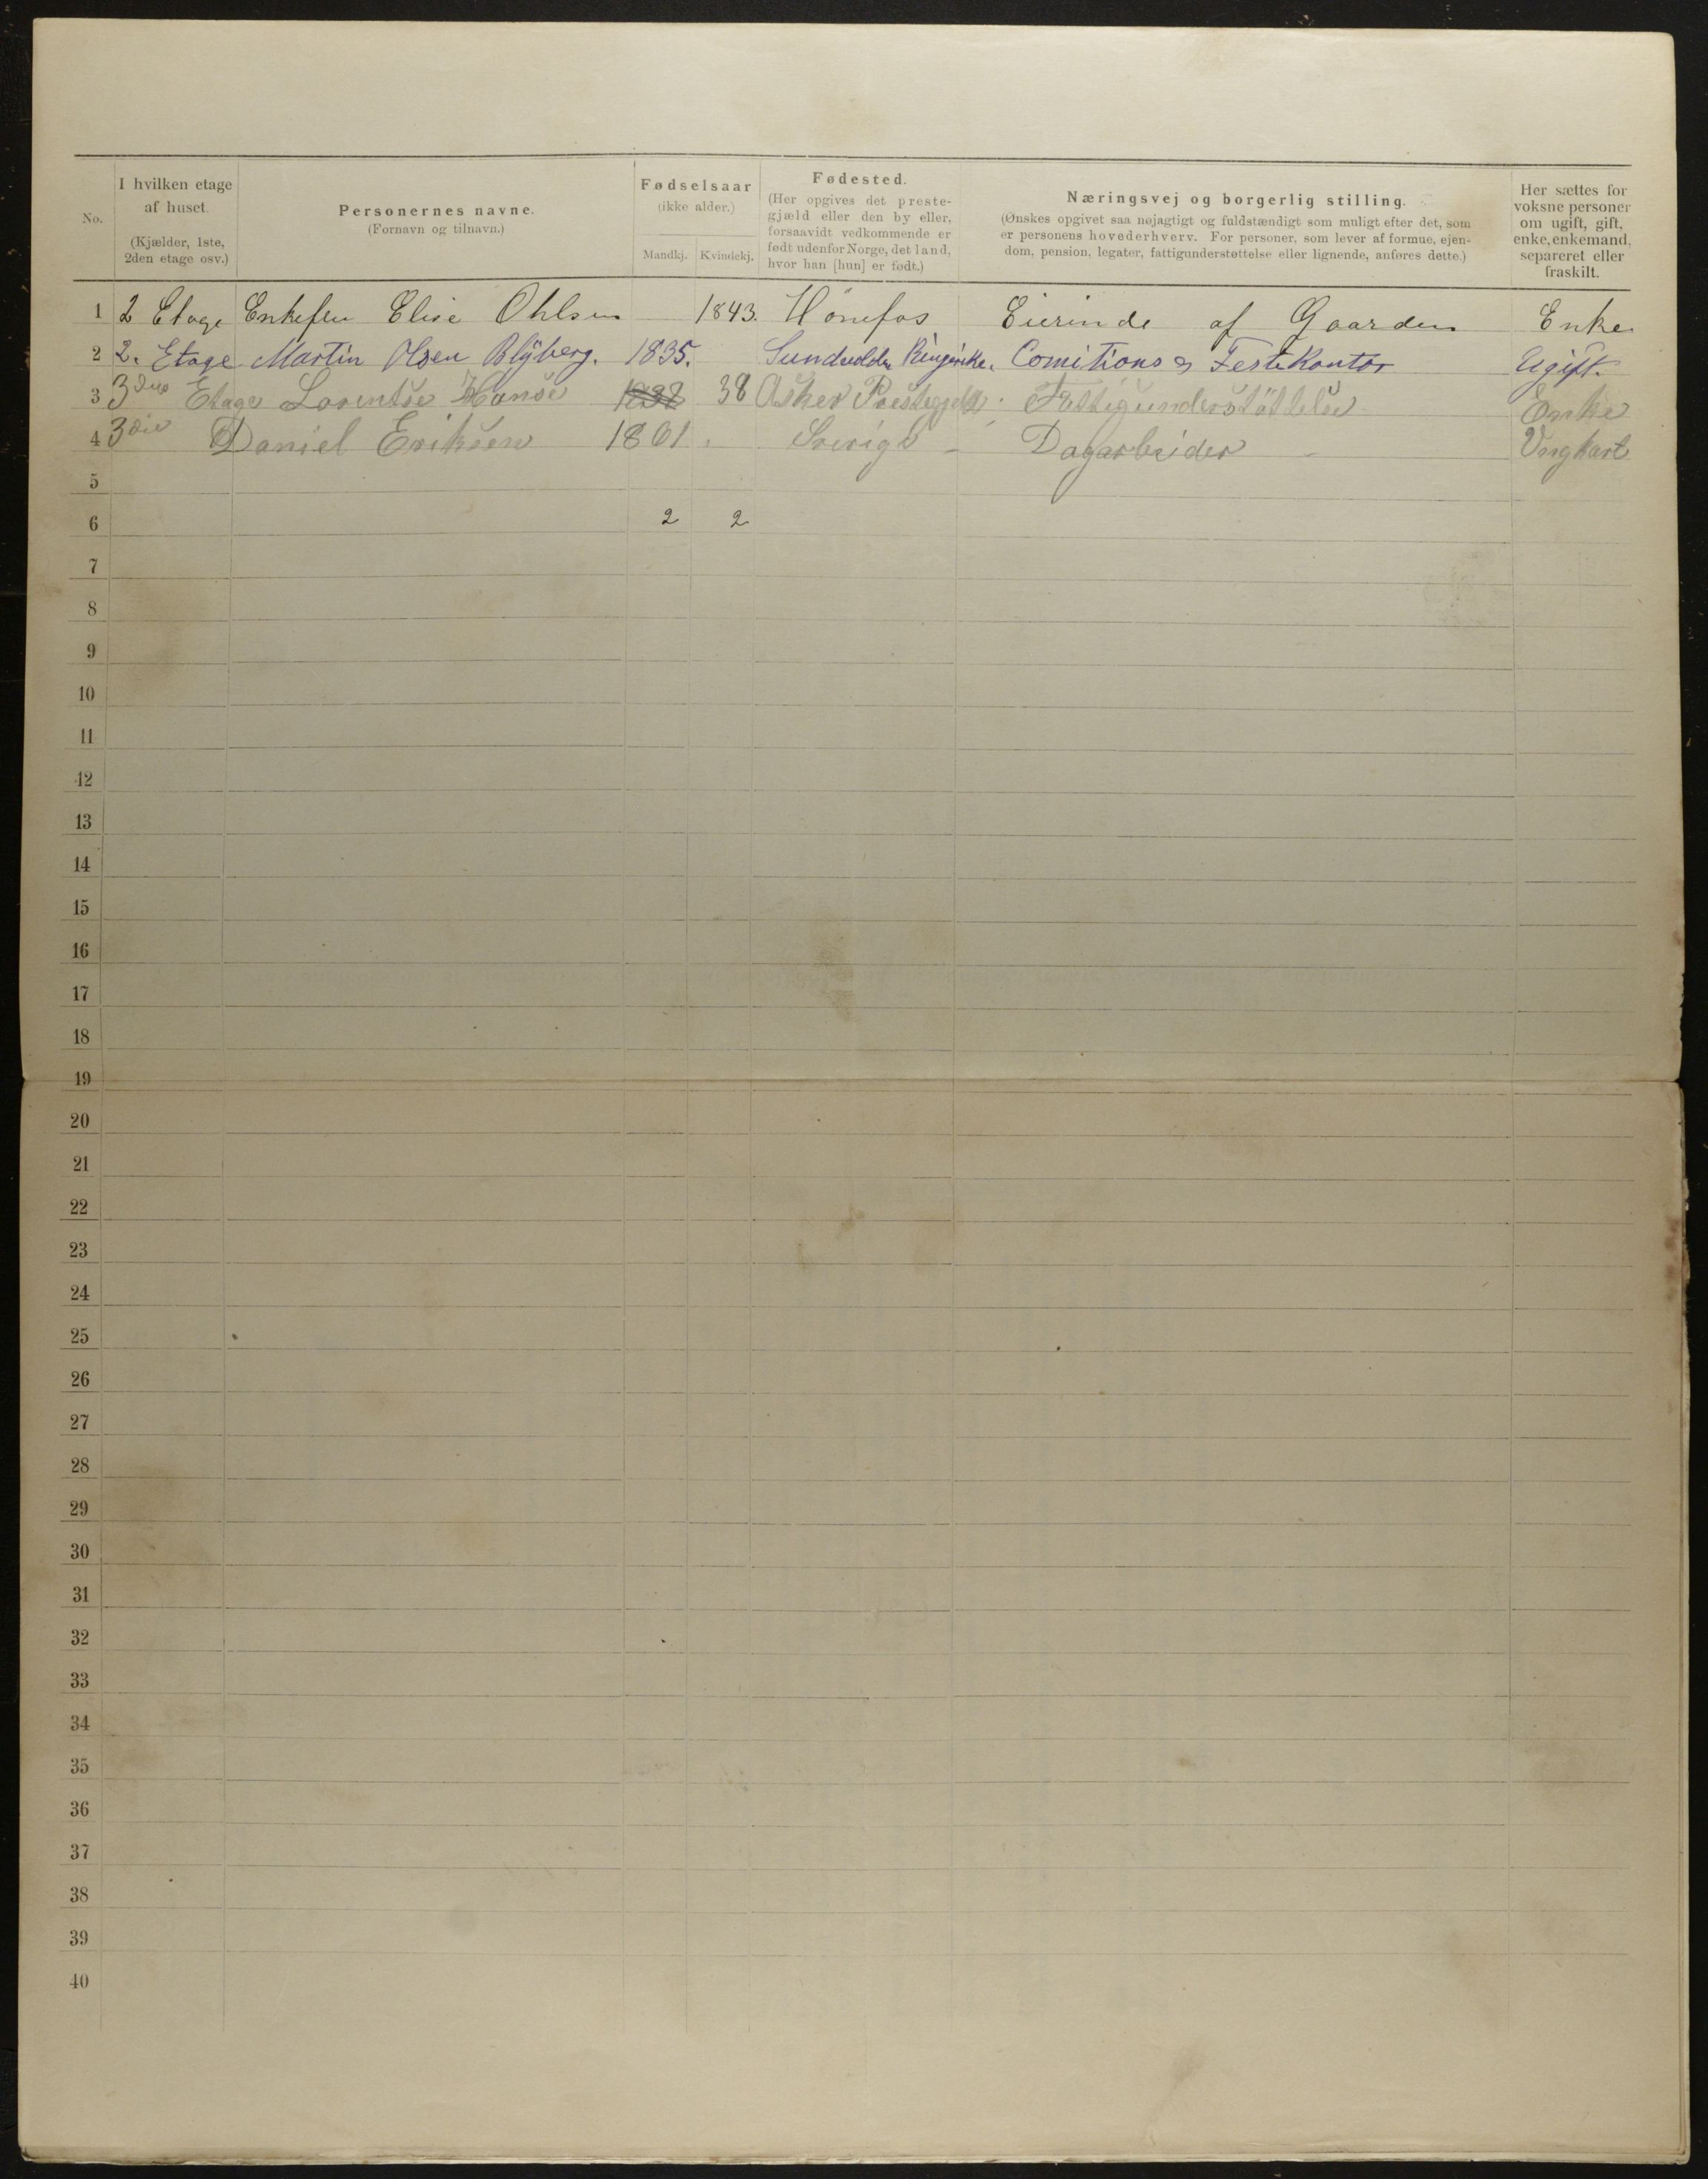 No.
I hvilken etage af huset.
(Kjælder, 1ste, 2den etage osv.)
Personernes navne.
(Fornavn og tilnavn.)
Fødselsaar
(ikke alder.)
Mandkj. Kvindekj.
Fødested.
(Her opgives det preste-
gjæld eller den by eller,
forsaavidt vedkommende er
født udenfor Norge, det land,
hvor han [hun] er født.)
Næringsvej og borgerlig stilling.
(Ønskes opgivet saa nøjagtigt og fuldstændigt som muligt efter det, som
er personens hovederhverv. For personer, som lever af formue, ejen-
dom, pension, legater, fattigunderstøttelse eller lignende, anføres dette.)
Her sættes for
voksne personer
om ugift, gift,
enke, enkemand,
separeret eller
fraskilt.
1 2 Etage Elise Ohlsen 1843. Hönefos Eierinde af Gaarden Enke
2 2. Etage Martin Olsen Blÿberg. 1835. Sundvolden Ringerike. Comitions & Festekontor Ugift.
3 3die Etage Lorentse Hanse 1838 38 Asker Prestegjeld. Fattigunderstöttelse Enke
4 3die Daniel Eriksen 1861. Sverige - Dagarbeider - Ungkarl
5
6 2 2
7
8
9
10
11
12
13
14
15
16
17
18
19
20
21
22
23
24
25
26
27
28
29
30
31
32
33
34
35
36
37
38
39
40